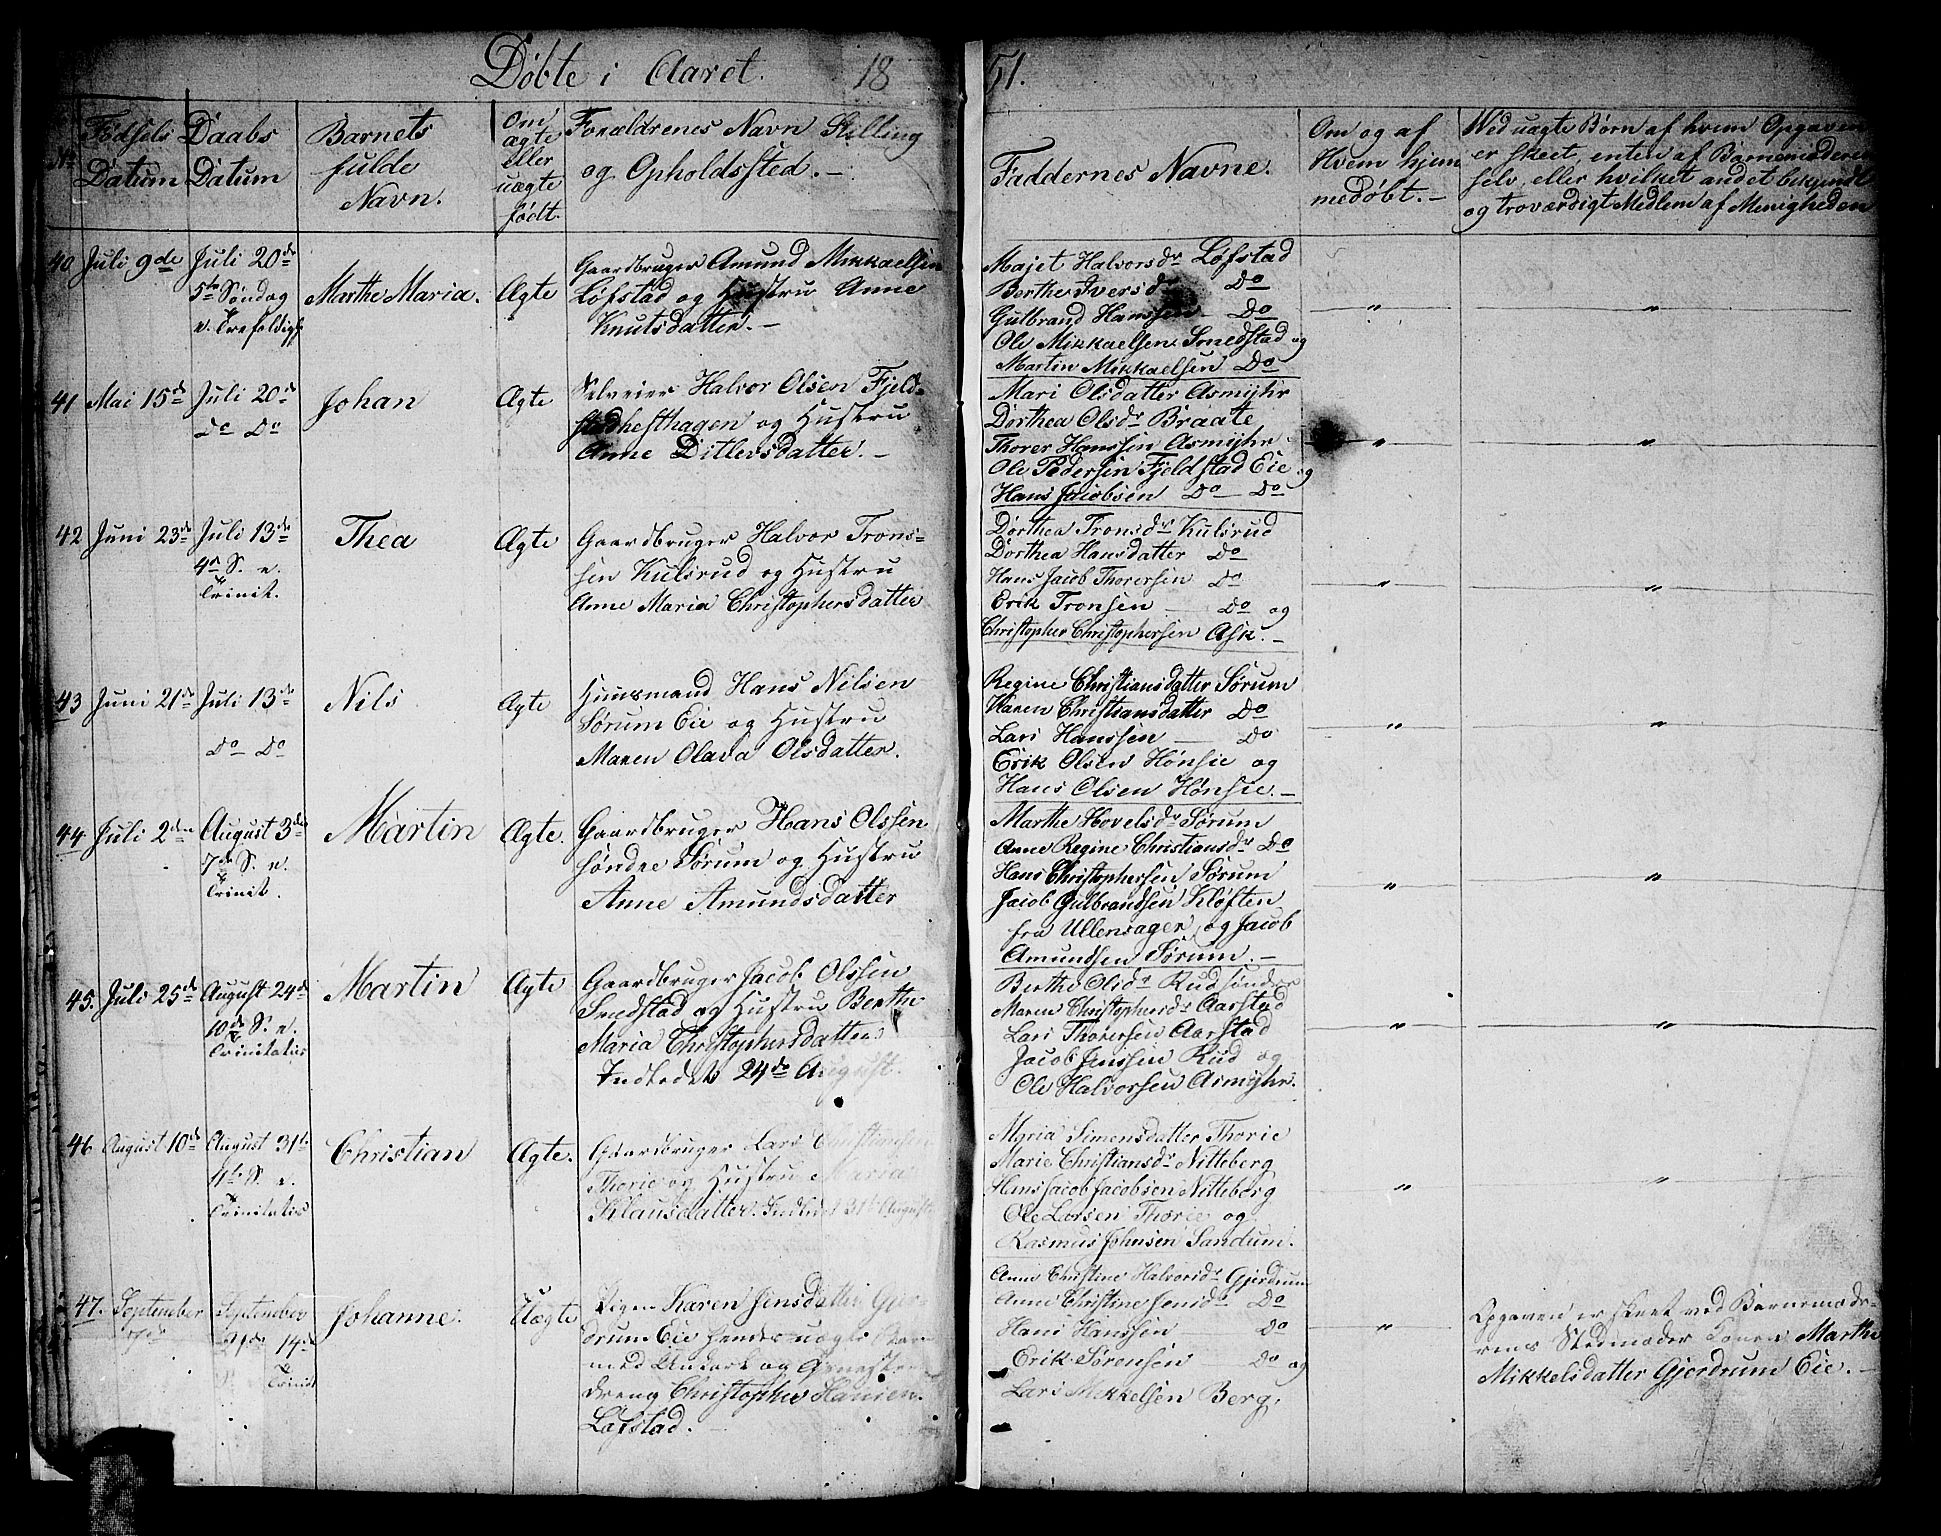 Döbte i Aaret. 18 51.
No
Födsels Datum
Daabs Datum
Barnets fulde Navn.
Om ægte eller uægte födt.
Forældrenes Navn Stilling
og Opholdssted. —
Faddernes Navne.
Om og af Hvem hjemmedöbt. —
Ved uægte Börn af hvem Opgaven
er skeet, enten af Barnemoderen
selv, eller hvilket andet bekjendt
og troværdigt Medlem af Menigheden
40 Juli 9de
Juli 20de
5te Söndag
e. Trefoldigh
Marthe Maria.
Ægte
Gaardbruger Amund Mikkaelsen
Löfstad og Hustru Anne
Knutsdatter. —
Majet Halvorsdr Löfstad
Berthe Iversdr Do
Gulbrand Hanssen Do
Ole Mikkaelsen Smedstad og
Martin Mikkaelsen Do
"
"
41 Mai 15de
Juli 20de
Do Do
Johan
Ægte
Selveier Halvor Olsen Fjeld-
stadhesthagen og Hustru
Anne Ditlevsdatter. —
Mari Olsdatter Asmyhr
Dorthea Olsdr Braate
Thorer Hanssen Asmyhr
Ole Pedersen Fjeldstad Eie og
Hans Jacobsen Do — Do
"
"
42 Juni 23de
Juli 13de
4de S. e.
Trinit.
Thea
Ægte
Gaardbruger Halvor Trons-
sen Kulsrud og Hustru
Anne Maria Christophersdatter
Dorthea Tronsdr Kulsrud
Dorthea Hansdatter Do
Hans Jacob Thorersen Do
Erik Tronsen — Do og
Christopher Christophersen Ask. —
"
"
43 Juni 21de
Juli 13de
Do Do
Nils
Ægte
Huusmand Hans Nilsen
Sörum Eie og Hustru
Maren Olava Olsdatter.
Regine Christiansdatter Sörum
Karen Christiansdatter Do
Lars Hanssen — Do
Erik Olsen Hönsie og
Hans Olsen Hönsie. —
"
"
44 Juli 2den
August 3die
7de S. e.
Trinit.
Martin
Ægte.
Gaardbruger Hans Olssen
söndre Sörum og Hustru
Anne Amundsdatter
Marthe Hovelsdr Sörum
Anne Regine Christiansdr Do
Hans Christophersen Sörum
Jacob Gulbrandsen Klöften
fra Ullensager, og Jacob
Amundsen Sörum. —
"
"
45. Juli 25de
August 24de
10de S. e.
Trinitatis
Martin
Ægte
Gaardbruger Jacob Olssen
Smedstad og Hustru Berthe
Maria Christophersdatter.
Indledet 24de August.
Berthe Olsdr Rud sönder
Maren Christophersdr Aarstad
Lars Thorersen Aarstad
Jacob Jenssen Rud og
Ole Halvorsen Asmyhr.
"
"
46 August 10de
August 31te
11te S. e.
Trinitatis
Christian
Ægte.
Gaardbruger Lars Christiansen
Thorie og Hustru Maria
Klausdatter. Indledet 31te August
Maria Simensdatter Thorie
Marie Christiansdr Nitteberg
Hans Jacob Jacobsen Nitteberg
Ole Larsen Thorie og
Rasmus Johnsen Sandum.
"
"
47. September
September
14de
Trinit
Johanne.
Uægte
Pigen Karen Jensdatter Gjer-
drum Eie hendes uægte Barn
med Ungkarl og
dreng Christopher Hansen
Löfstad. —
Anne Christine Halvorsdr Gjerdrum
Anne Christine Jensdr Do
Hans Hanssen Do
Erik Sörensen Do og
Lars Mikkelsen Berg.
"
Opgaven er skeet ved Barnemode-
rens Stedmoder Konen Marthe
Mikkelsdatter Gjerdrum Eie. —